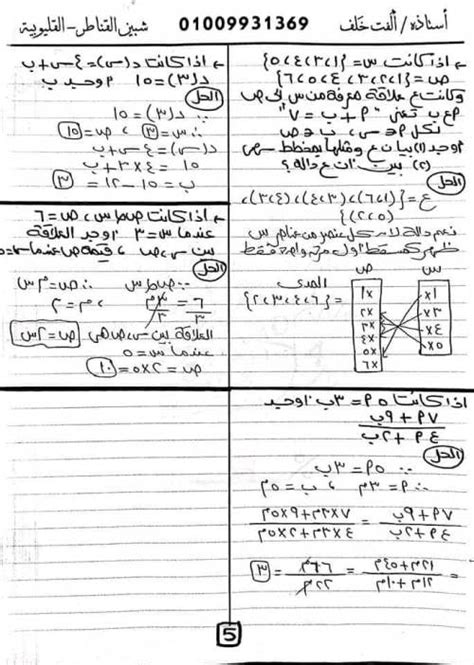 أستاذه/ ألفت خلف 01009931369 شبين القناطر - القليوبية
اذا كانت س = {١،٣،٤،٥}
ص = {١،٢،٣،٤،٥،٦}
وكانت ع علاقة معرفة من س إلى ص
حيث ٩ ع ب تعنى "٩ + ب = ٧"
لكل ٩ ∈ س ، ب ∈ ص
اوجد (١) بيان ع ومثلها بمخطط سهمى
(٢) بين ان ع دالة؟
الحل
ع = {(١،٦)، (٣،٤)، (٤،٣)،
(٥،٢)}
نعم دالة لان كل عنصر من عناصر س
ظهر كمسقط اول مرة واحدة فقط
س ص
١ ٣ ٤ ٥
١ ٢ ٣ ٤ ٥ ٦
المدى
= {٦،٤،٣،٢}
اذا كانت د(س) = ٤س + ب
د(٣) = ١٥ اوجد ب
الحل
∵ د(٣) = ١٥
∴ س = ٣ ، ص = ١٥
د(س) = ٤س + ب
١٥ = ٤×٣ + ب
ب = ١٥ - ١٢ = ٣
اذا كانت ص ∝ س ، ص = ٦
عندما س = ٣ اوجد العلاقة
بين س ، ص ، قيمة ص عندما س = ٥
الحل
∵ ص ∝ س ∴ ص = م س
٦/٣ = ٣م/٣ ، م = ٢
العلاقة بين س ، ص هى ص = ٢س
عندما س = ٥
ص = ٢×٥ = ١٠
اذا كانت ٥٩ = ٣ب اوجد
٧٩ + ٩ب
٤٩ + ٢ب
الحل
∵ ٥٩ = ٣ب
∴ ٩ = ٣م ، ب = ٥م
٧٩ + ٩ب / ٤٩ + ٢ب = ٧×٣م + ٩×٥م / ٤×٣م + ٢×٥م
= ٢١م + ٤٥م / ١٢م + ١٠م = ٦٦م / ٢٢م = ٣
5